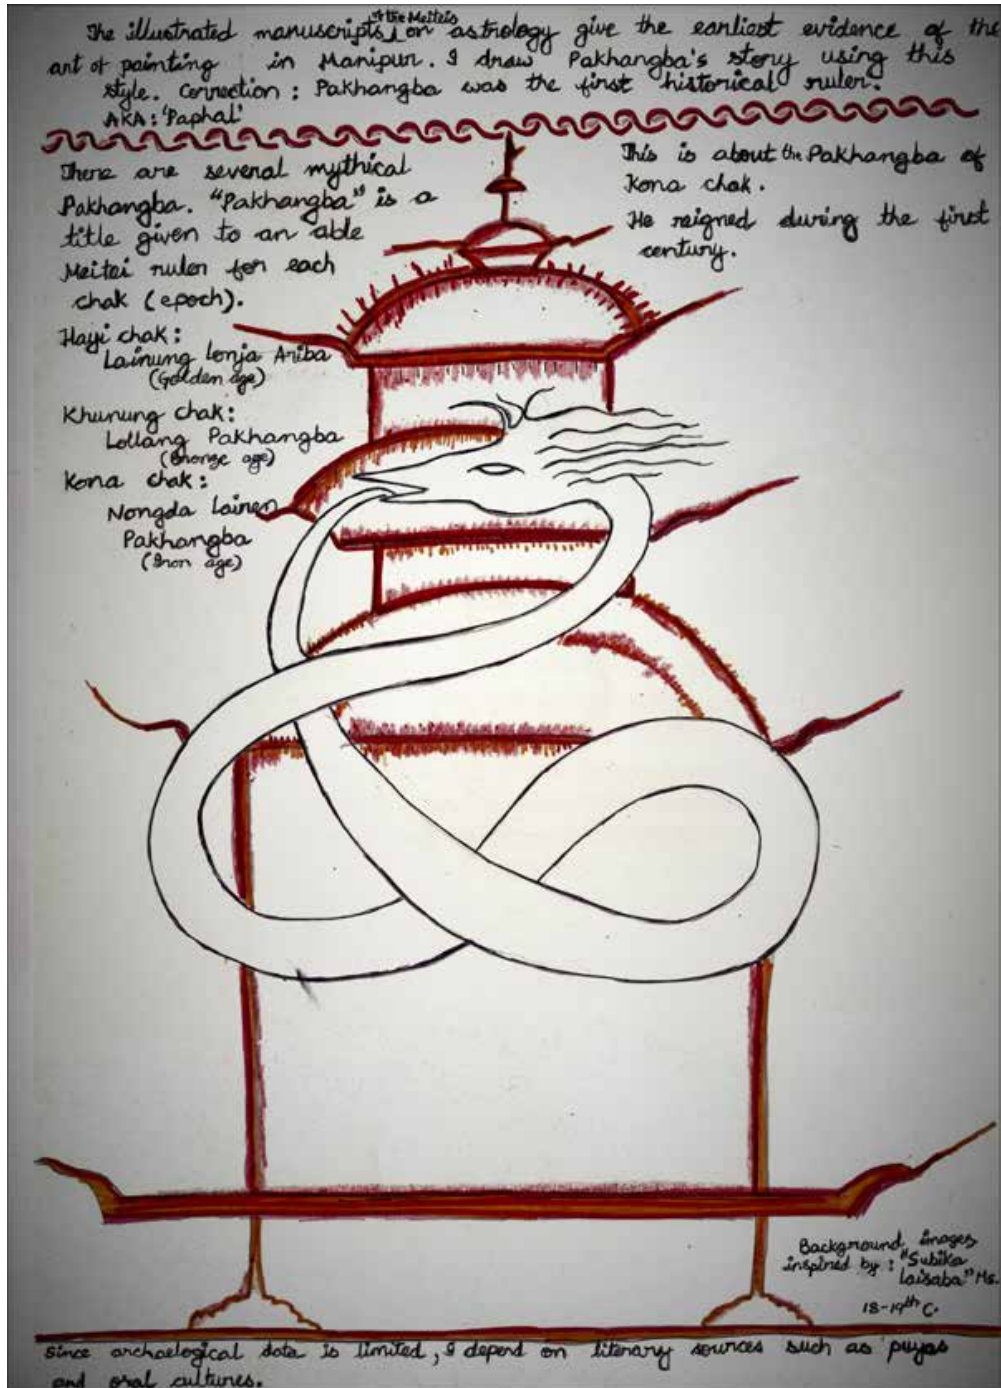 The illustrated manuscripts of the Meiteis on astrology give the earliest evidence of the
art of painting in Manipur. I draw Pakhangba's story using this
style. Correction: Pakhangba was the first historical ruler.
AKA: 'Paphal'
There are several mythical
Pakhangba. "Pakhangba" is a
title given to an able
Meitei ruler for each
chak (epoch).
Hayi chak:
Lainung lonja Ariba
(Golden age)
Khunung chak:
Lollang Pakhangba
(Bronze age)
Kona chak:
Nongda Lairen
Pakhangba
(Iron age)
This is about the Pakhangba of
Kona chak.
He reigned during the first
century.
Background images
inspired by: "Subika
Laisaba" Ms.
18-19th C.
Since archaelogical data is limited, I depend on literary sources such as puyas
and oral cultures.